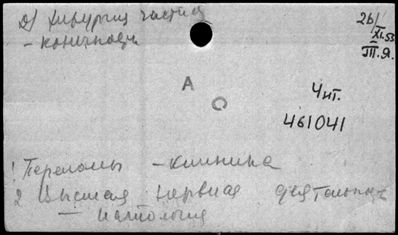 д) Хирургия частная
- конечности
26/XI.53
III.Я.
А
С
Чит.
461041
1 Переломы - клиника
2 Высшая нервная деятельность
- патология